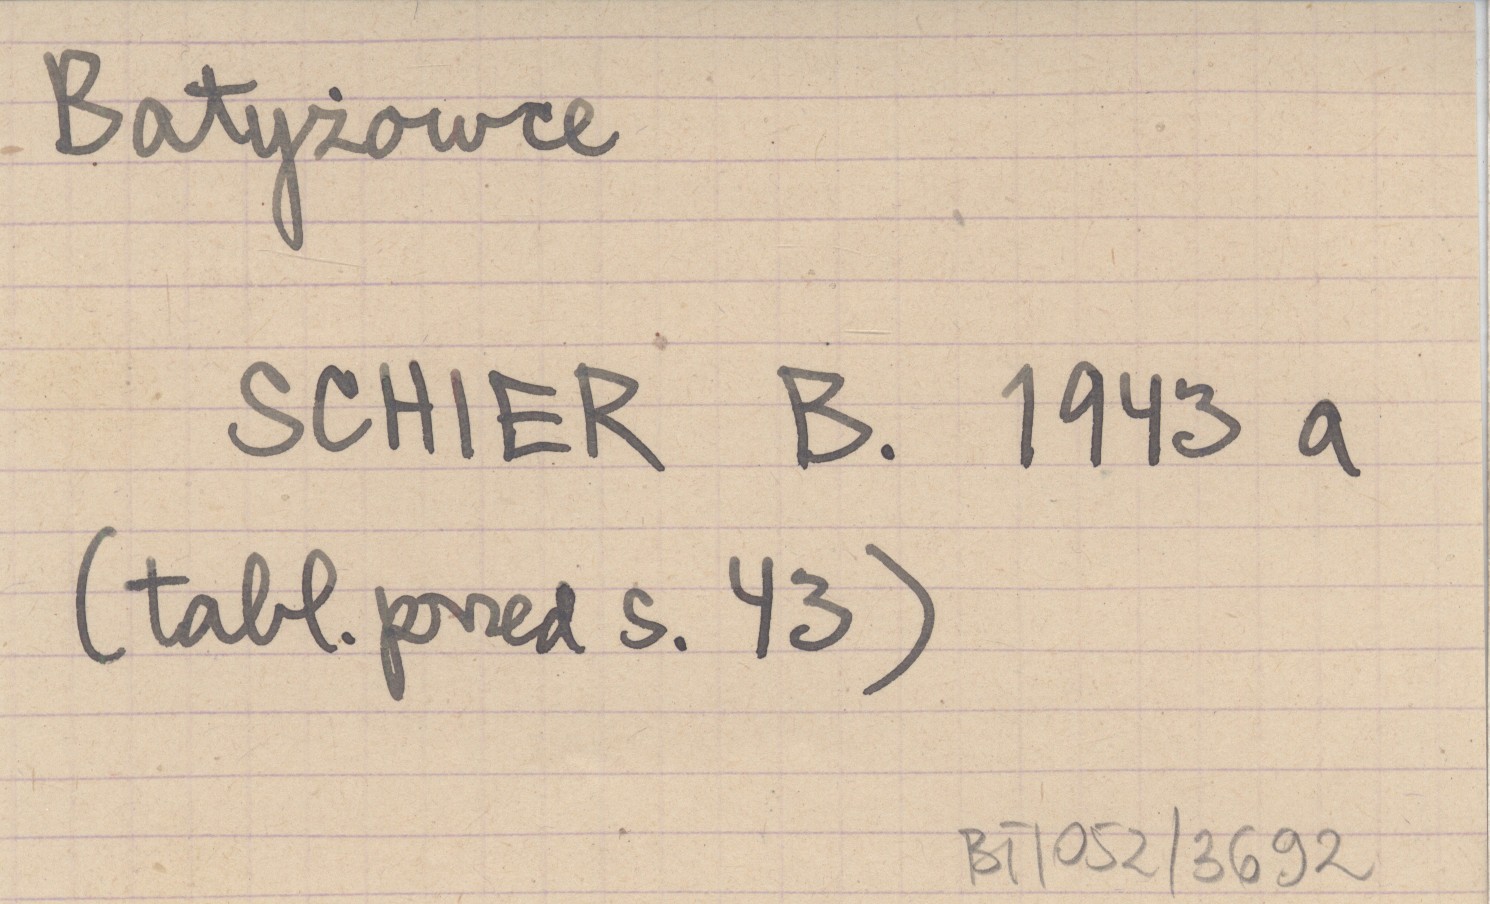 Batyżowce
SCHIER B. 1943 a
(tabl. przed s. 43)
BT/052/3692